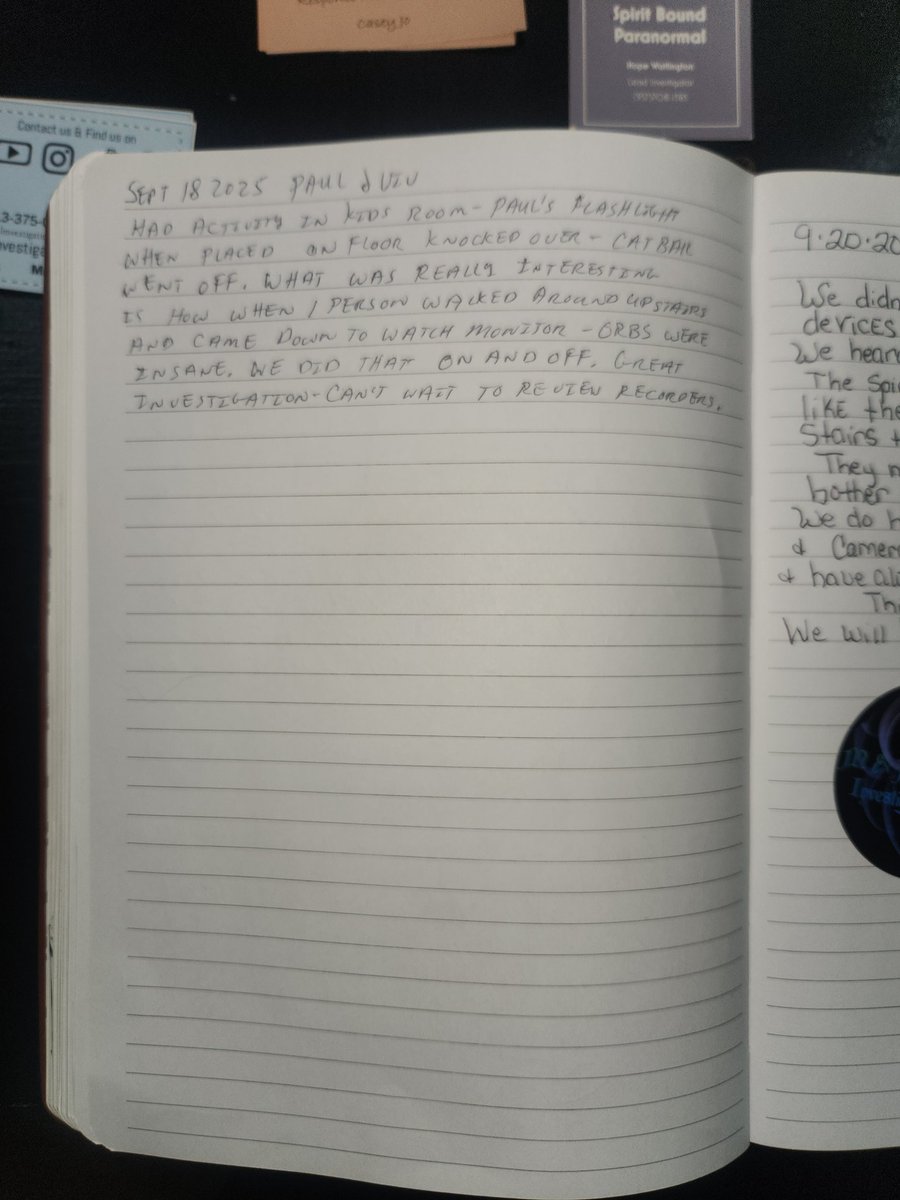 casey.10
Spirit Bound
Paranormal
Contact us & Find us on
SEPT 18 2025 PAUL & VIV
HAD ACTIVITY IN KIDS ROOM - PAUL'S FLASHLIGHT
WHEN PLACED ON FLOOR KNOCKED OVER - CATBALL
WENT OFF. WHAT WAS REALLY INTERESTING
IS HOW WHEN 1 PERSON WALKED AROUND UPSTAIRS
AND CAME DOWN TO WATCH MONITOR - ORBS WERE
INSANE. WE DID THAT ON AND OFF. GREAT
INVESTIGATION - CAN'T WAIT TO REVIEW RECORDERS.
9.20.20
We didn
devices
We hear
The Spi
like the
Stairs t
They n
bother
We do h
& Camer
& have al
Th
We will